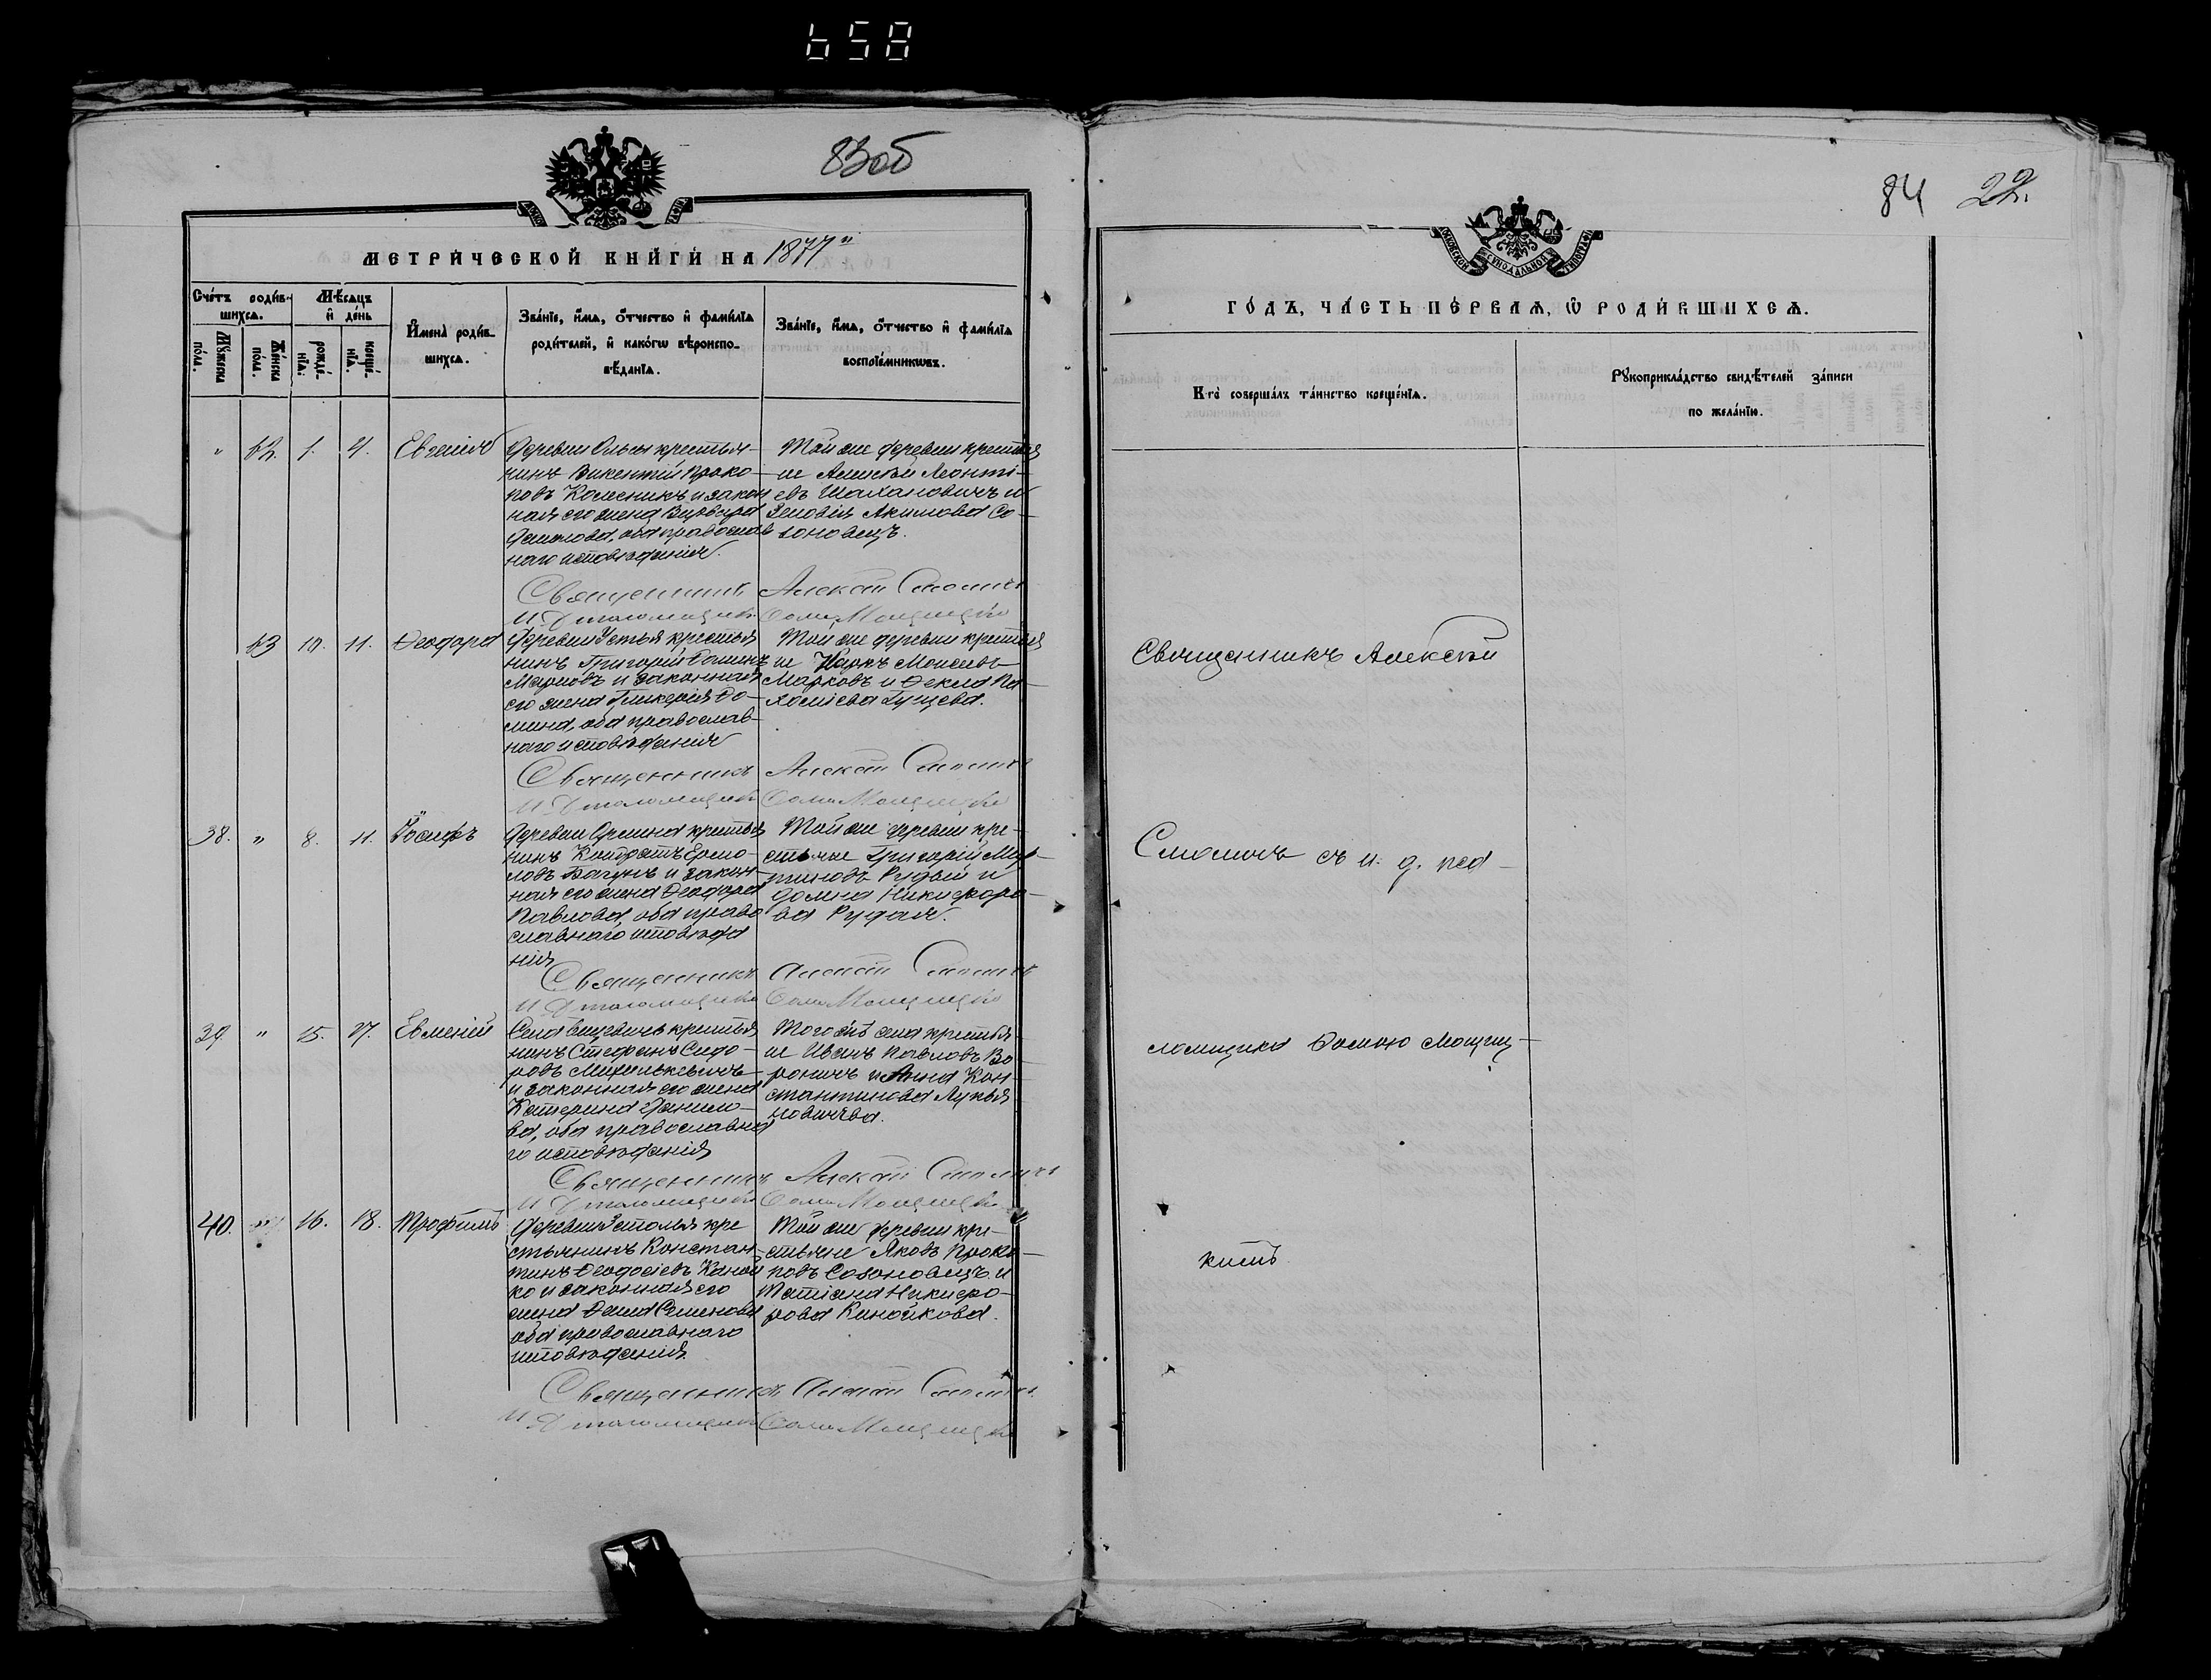 658
83об
МЕТРИ́ЧЕСКОЙ КНИ́ГИ НА 1877"
Сче́тъ роди́вшихсѧ.
Мѣ́сѧцъ и҆ де́нь
И҆мена̀ роди́вшихсѧ.
Зва́нїе, и҆́мѧ, ѻ҆́тчество и҆ фами́лїѧ
роди́телей, и҆ како́гѡ вѣроиспо-
вѣ́данїѧ.
Зва́нїе, и҆́мѧ, ѻ҆́тчество и҆ фами́лїѧ
воспрїе́мникѡвъ.
Мꙋ́жеска по́ла.
Же́нска по́ла.
рожде́нїѧ.
креще́нїѧ.
" 42. 1. 4. Евгенія
Деревни Ольсы крестья-
нинъ Викентій Проко-
повъ Колесникъ и закон
ная его жена Варвара
оба православ
наго исповѣданія.
Той же деревни крестья
не Алексѣй Леонті-
евъ Шахановичъ и
Зеновія Акимова Со-
зоновецъ.
Священникъ Алексѣй Смоличъ
43 10. 11. Ѳеодора
Деревни Устья крестья
нинъ Григорій
Марковъ и законная
его жена Гликерія Ѳо-
мина, оба православ-
наго исповѣданія
Той же деревни крестья
не Маркъ Моисеевъ
Марковъ и Ѳекла Па-
хоміева Гущева.
Священникъ Алексѣй Смоличъ
38. " 8. 11. Іосифъ
Деревни крестья
нинъ Кондратъ Ермо-
ловъ Багунъ и закон-
ная его жена Ѳеодора
Павлова, оба право
славнаго исповѣда
нія
Той же деревни кре-
стьяне Григорій Мар-
тиновъ Рудый и
Домна Никифоро-
ва Рудая.
Священникъ Алексѣй Смоличъ
39. " 15. 17. Евменій
Села крестья
нинъ Стефанъ Сидо-
ровъ Михалькевичъ
и законная его жена
Катерина Данило-
ва, оба православна
го исповѣданія
Того же села крестья
не Иванъ Павловъ Во
роничъ и Анна Кон-
стантинова Лукья
новичева.
Священникъ Алексѣй Смоличъ
40. " 16. 18. Трофимъ
Деревни кре
стьянинъ Констан-
тинъ Ѳеодосіевъ Каной
ко и законная его
жена Семенова
оба православнаго
исповѣданія.
Той же деревни кре-
стьяне Яковъ Проко-
повъ Созоновецъ и
Татіана Никифо-
рова Канойкова.
Священникъ Алексѣй Смоличъ
84 22.
ГО́ДЪ, ЧА́СТЬ ПЕ́РВАѦ, Ѡ҆ РОДИ́ВШИХСѦ.
Кто̀ соверша́лъ та́инство креще́нїѧ.
Рꙋкоприкла́дство свидѣ́телей за́писи
по жела́нїю.
Священникъ Алексѣй
Смоличъ съ и. д. пса-
ломщика Ѳомою Мощиц-
кимъ